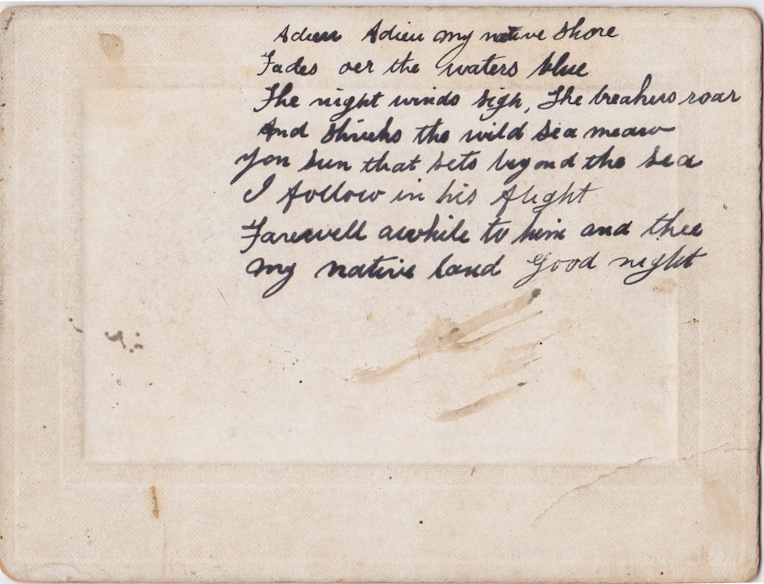 Adieu Adieu my native Shore
Fades oer the waters blue
The night winds sigh, The breakers roar
And Shrieks the wild Sea meaw
Yon Sun that sets beyond the Sea
I follow in his flight
Farewell awhile to him and thee
My native land Good night